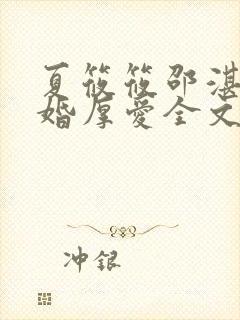 夏筱筱邵湛
婚厚爱全文
冲银